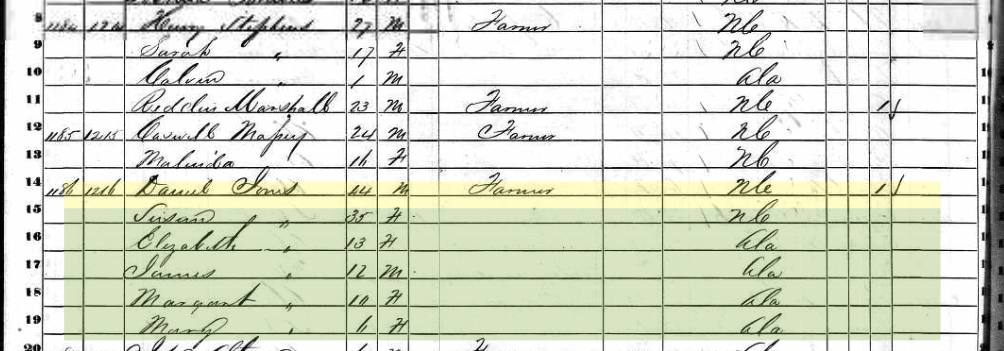 8 Henry Stephens 27 M Farmer NC
9 Sarah " 17 F NC
10 Calvin " 1 M Ala
11 Marshall 23 M Farmer NC 1
12 1185 1215 Caswell 24 M Farmer NC
13 Malinda 16 F NC
14 1186 1216 Daniel Jones 44 M Farmer NC 1
15 Susan " 35 F NC
16 Elizabeth " 13 F Ala
17 James " 12 M Ala
18 Margaret " 10 F Ala
19 Mary " 6 F Ala
20